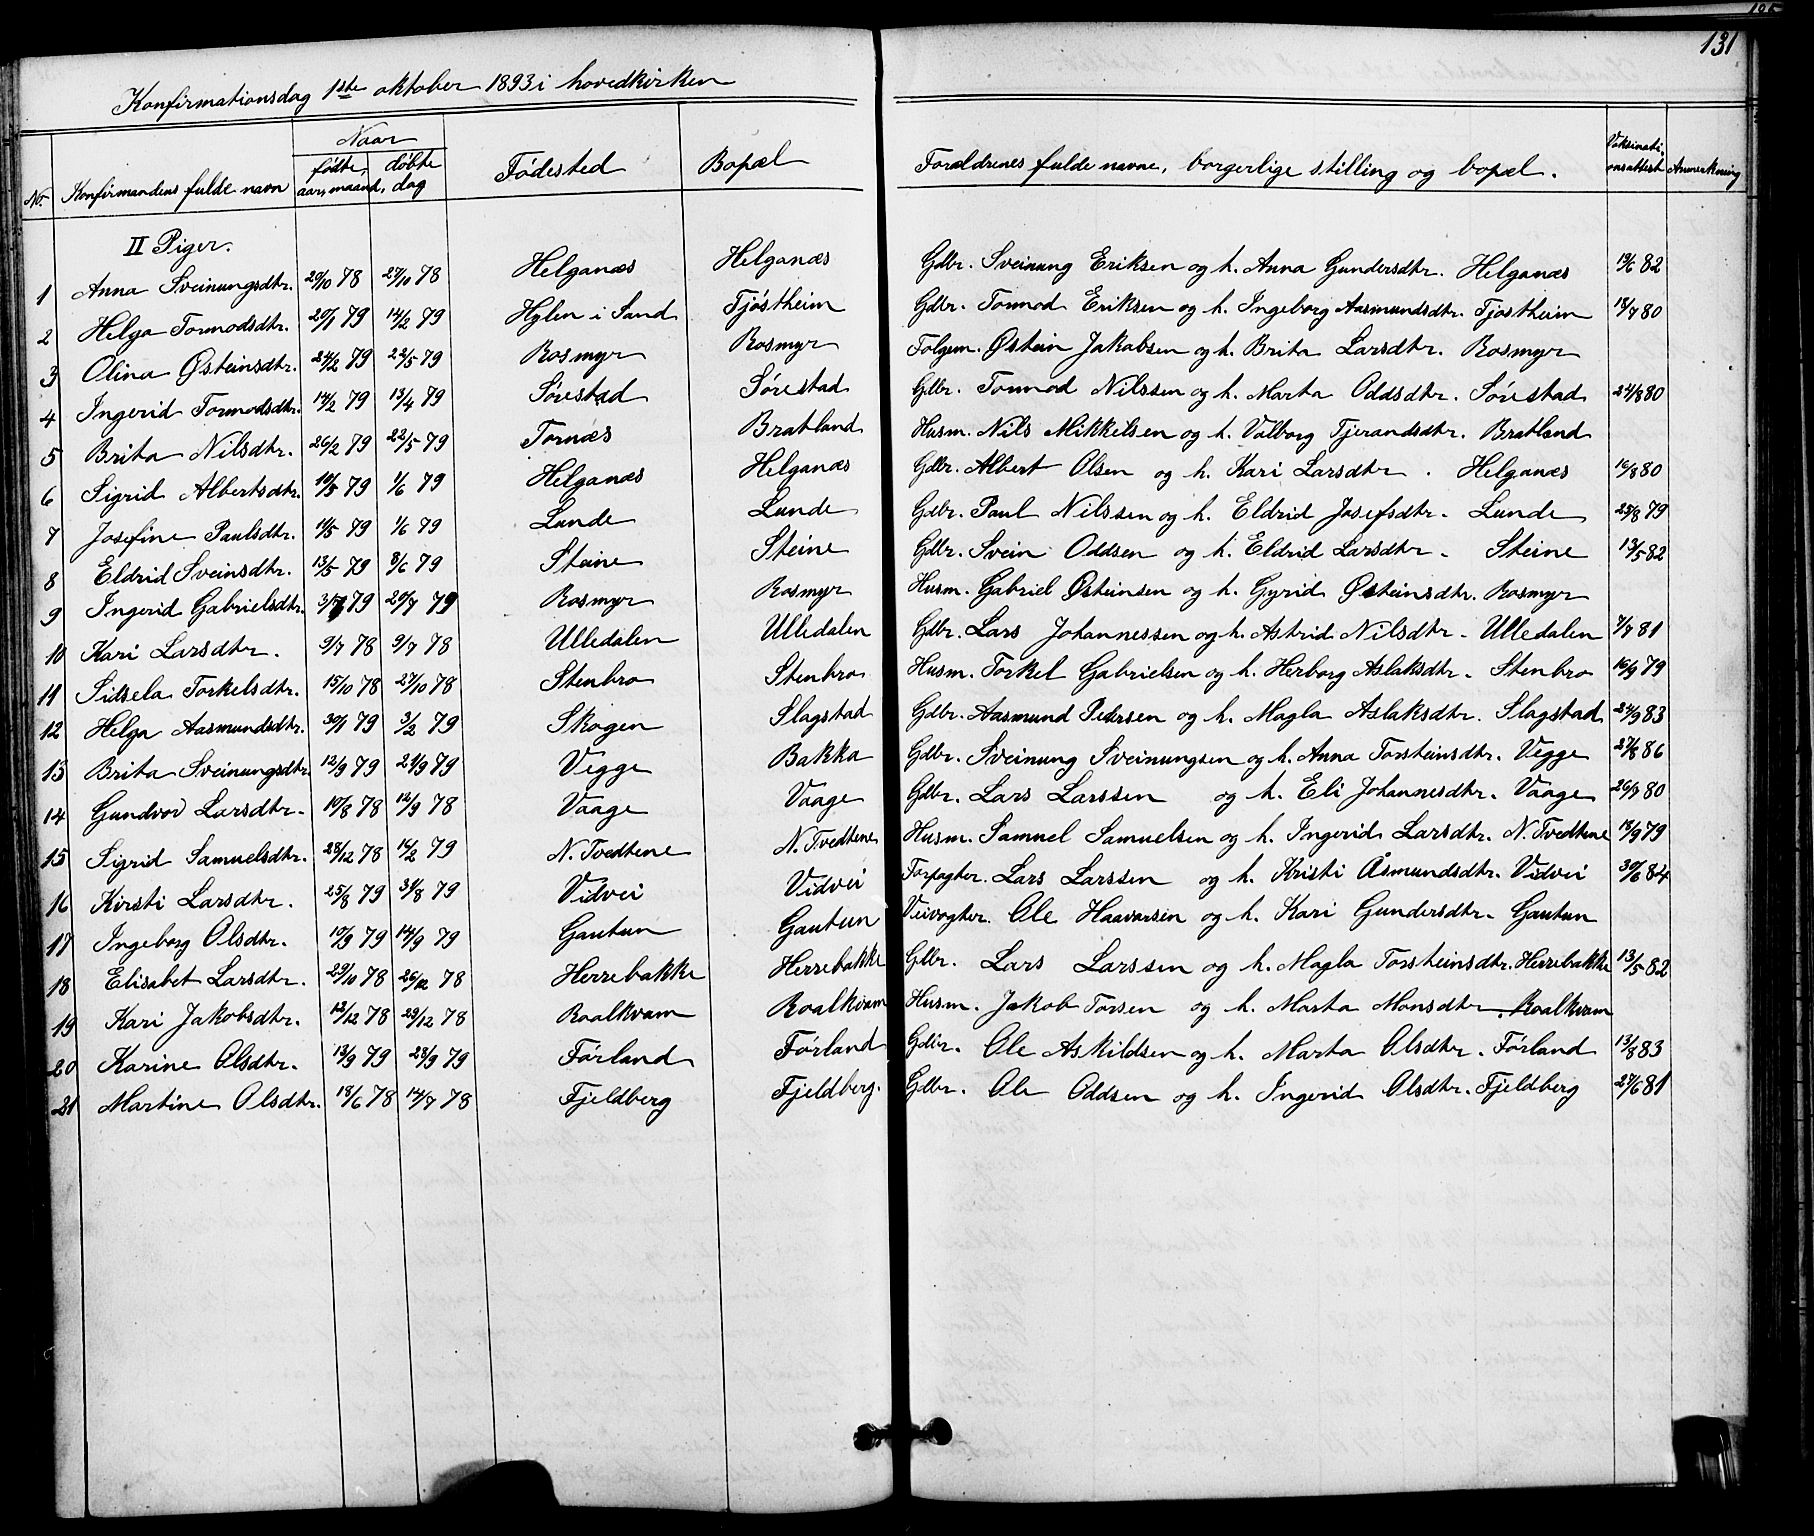 131
Konfirmationsdag 1ste oktober 1893 i hovedkirken
No. Konfirmandens fulde navn Naar fødte, døbte aar, maaned, dag Fødested Bopæl Forældrenes fulde navne, borgerlige stilling og bopæl. Vaksinationsattest Anmerkning
II Piger.
1 Anna Sveinungsdtr. 20/10 78 27/10 78 Helganæs Helganæs Gdbr. Sveinung Eriksen og h. Anna Gundersdtr. Helganæs 19/6 82
2 Helga Tormodsdtr. 20/1 79 14/2 79 Hylen i Sand Tjøstheim Gdbr. Tormod Eriksen og h. Ingeborg Aasmundsdtr. Tjøstheim 18/7 80
3 Olina Østeinsdtr. 24/2 79 22/5 79 Rosmyr Rosmyr Folgem. Østein Jakobsen og h. Brita Larsdtr. Rosmyr
4 Ingerid Tormodsdtr. 14/2 79 13/4 79 Sørestad Sørestad Gdbr. Tormod Nilssen og h. Marta Oddsdtr. Sørestad 24/8 80
5 Brita Nilsdtr. 26/2 79 22/5 79 Tornæs Bratland Husm. Nils Mikkelsen og h. Valborg Tjerandsdtr. Bratland
6 Sigrid Albertsdtr. 10/5 79 1/6 79 Helganæs Helganæs Gdbr. Albert Olsen og h. Kari Larsdtr. Helganæs 16/8 80
7 Josefine Paulsdtr. 11/5 79 1/6 79 Lunde Lunde Gdbr. Paul Nilssen og h. Eldrid Josefsdtr. Lunde 25/8 79
8 Eldrid Sveinsdtr. 13/5 79 8/6 79 Steine Steine Gdbr. Svein Oddsen og h. Eldrid Larsdtr. Steine 13/5 82
9 Ingerid Gabrielsdtr. 3/7 79 20/7 79 Rosmyr Rosmyr Husm. Gabriel Østeinsen og h. Gyrid Østeinsdtr. Rosmyr
10 Kari Larsdtr. 9/7 78 9/7 78 Ulledalen Ulledalen Gdbr. Lars Johannessen og h. Astrid Nilsdtr. Ulledalen 7/7 81
11 Sidsela Torkelsdtr. 15/10 78 27/10 78 Stenbro Stenbro Husm. Torkel Gabrielsen og h. Herborg Aslaksdtr. Stenbro 16/9 79
12 Helga Aasmundsdtr. 30/1 79 3/2 79 Skogen Slagstad Gdbr. Aasmund Pedersen og h. Magla Aslaksdtr. Slagstad 24/9 83
13 Brita Sveinungsdtr. 12/9 79 21/9 79 Vegge Bakka Gdbr. Sveinung Sveinungsen og h. Anna Torsteinsdtr. Vegge 27/6 86
14 Gundvor Larsdtr. 10/8 78 12/9 78 Vaage Vaage Gdbr. Lars Larssen og h. Eli Johannesdtr. Vaage 26/7 80
15 Sigrid Samuelsdtr. 28/12 78 16/2 79 N. Tvedtene N. Tvedtene Husm. Samuel Samuelsen og h. Ingerid Larsdtr. N. Tvedtene 15/9 79
16 Kirsti Larsdtr. 25/8 79 31/8 79 Vidvei Vidvei Forpagter. Lars Larssen og h. Kristi Åsmundsdtr. Vidvei 30/6 84
17 Ingeborg Olsdtr. 10/9 79 14/9 79 Gautun Gautun Veivogter. Ole Haavarsen og h. Kari Gundersdtr. Gautun
18 Elisabet Larsdtr. 29/10 78 26/12 78 Herrebakke Herrebakke Gdbr. Lars Larssen og h. Magla Torsteinsdtr. Herrebakke 13/5 82
19 Kari Jakobsdtr. 12/12 78 29/12 78 Roalkvam Roalkvam Husm. Jakob Torsen og h. Marta Monsdtr. Roalkvam
20 Karine Olsdtr. 13/9 79 28/9 79 Førland Førland Gdbr. Ole Askildsen og h. Marta Olsdtr. Førland 13/8 83
21 Martine Olsdtr. 18/6 78 14/7 78 Fjeldberg Fjeldberg. Gdbr. Ole Oddsen og h. Ingerid Olsdtr. Fjeldberg 27/6 81